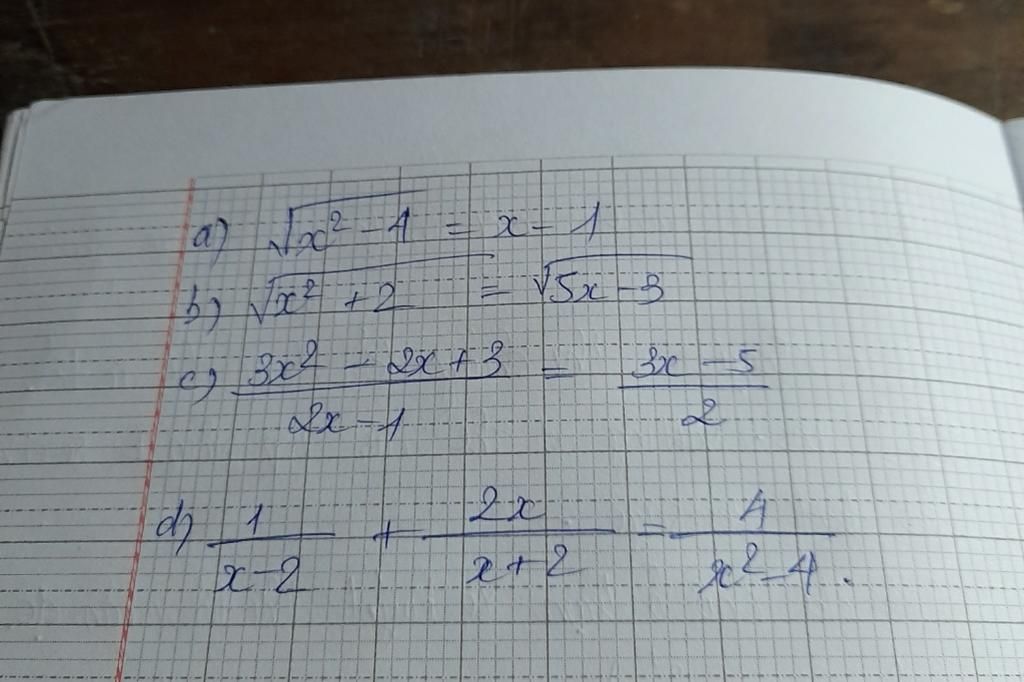 a) √(x² - 4) = x - 1
b) √(x² + 2) = √(5x - 3)
c) (3x² - 2x + 3)/(2x - 1) = (3x - 5)/2
d) 1/(x - 2) + 2x/(x + 2) = 4/(x² - 4).